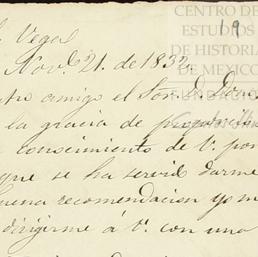 CENTRO DE
ESTUDIOS
DE HISTORIA
DE MEXICO
19
Vegas
Nov.e 21. de 1832.
amigo el Sor. D.
la gracia de
conocimiento de V. por
que se ha servid darme
buena recomendacion yo m
dirigirme á V. con una